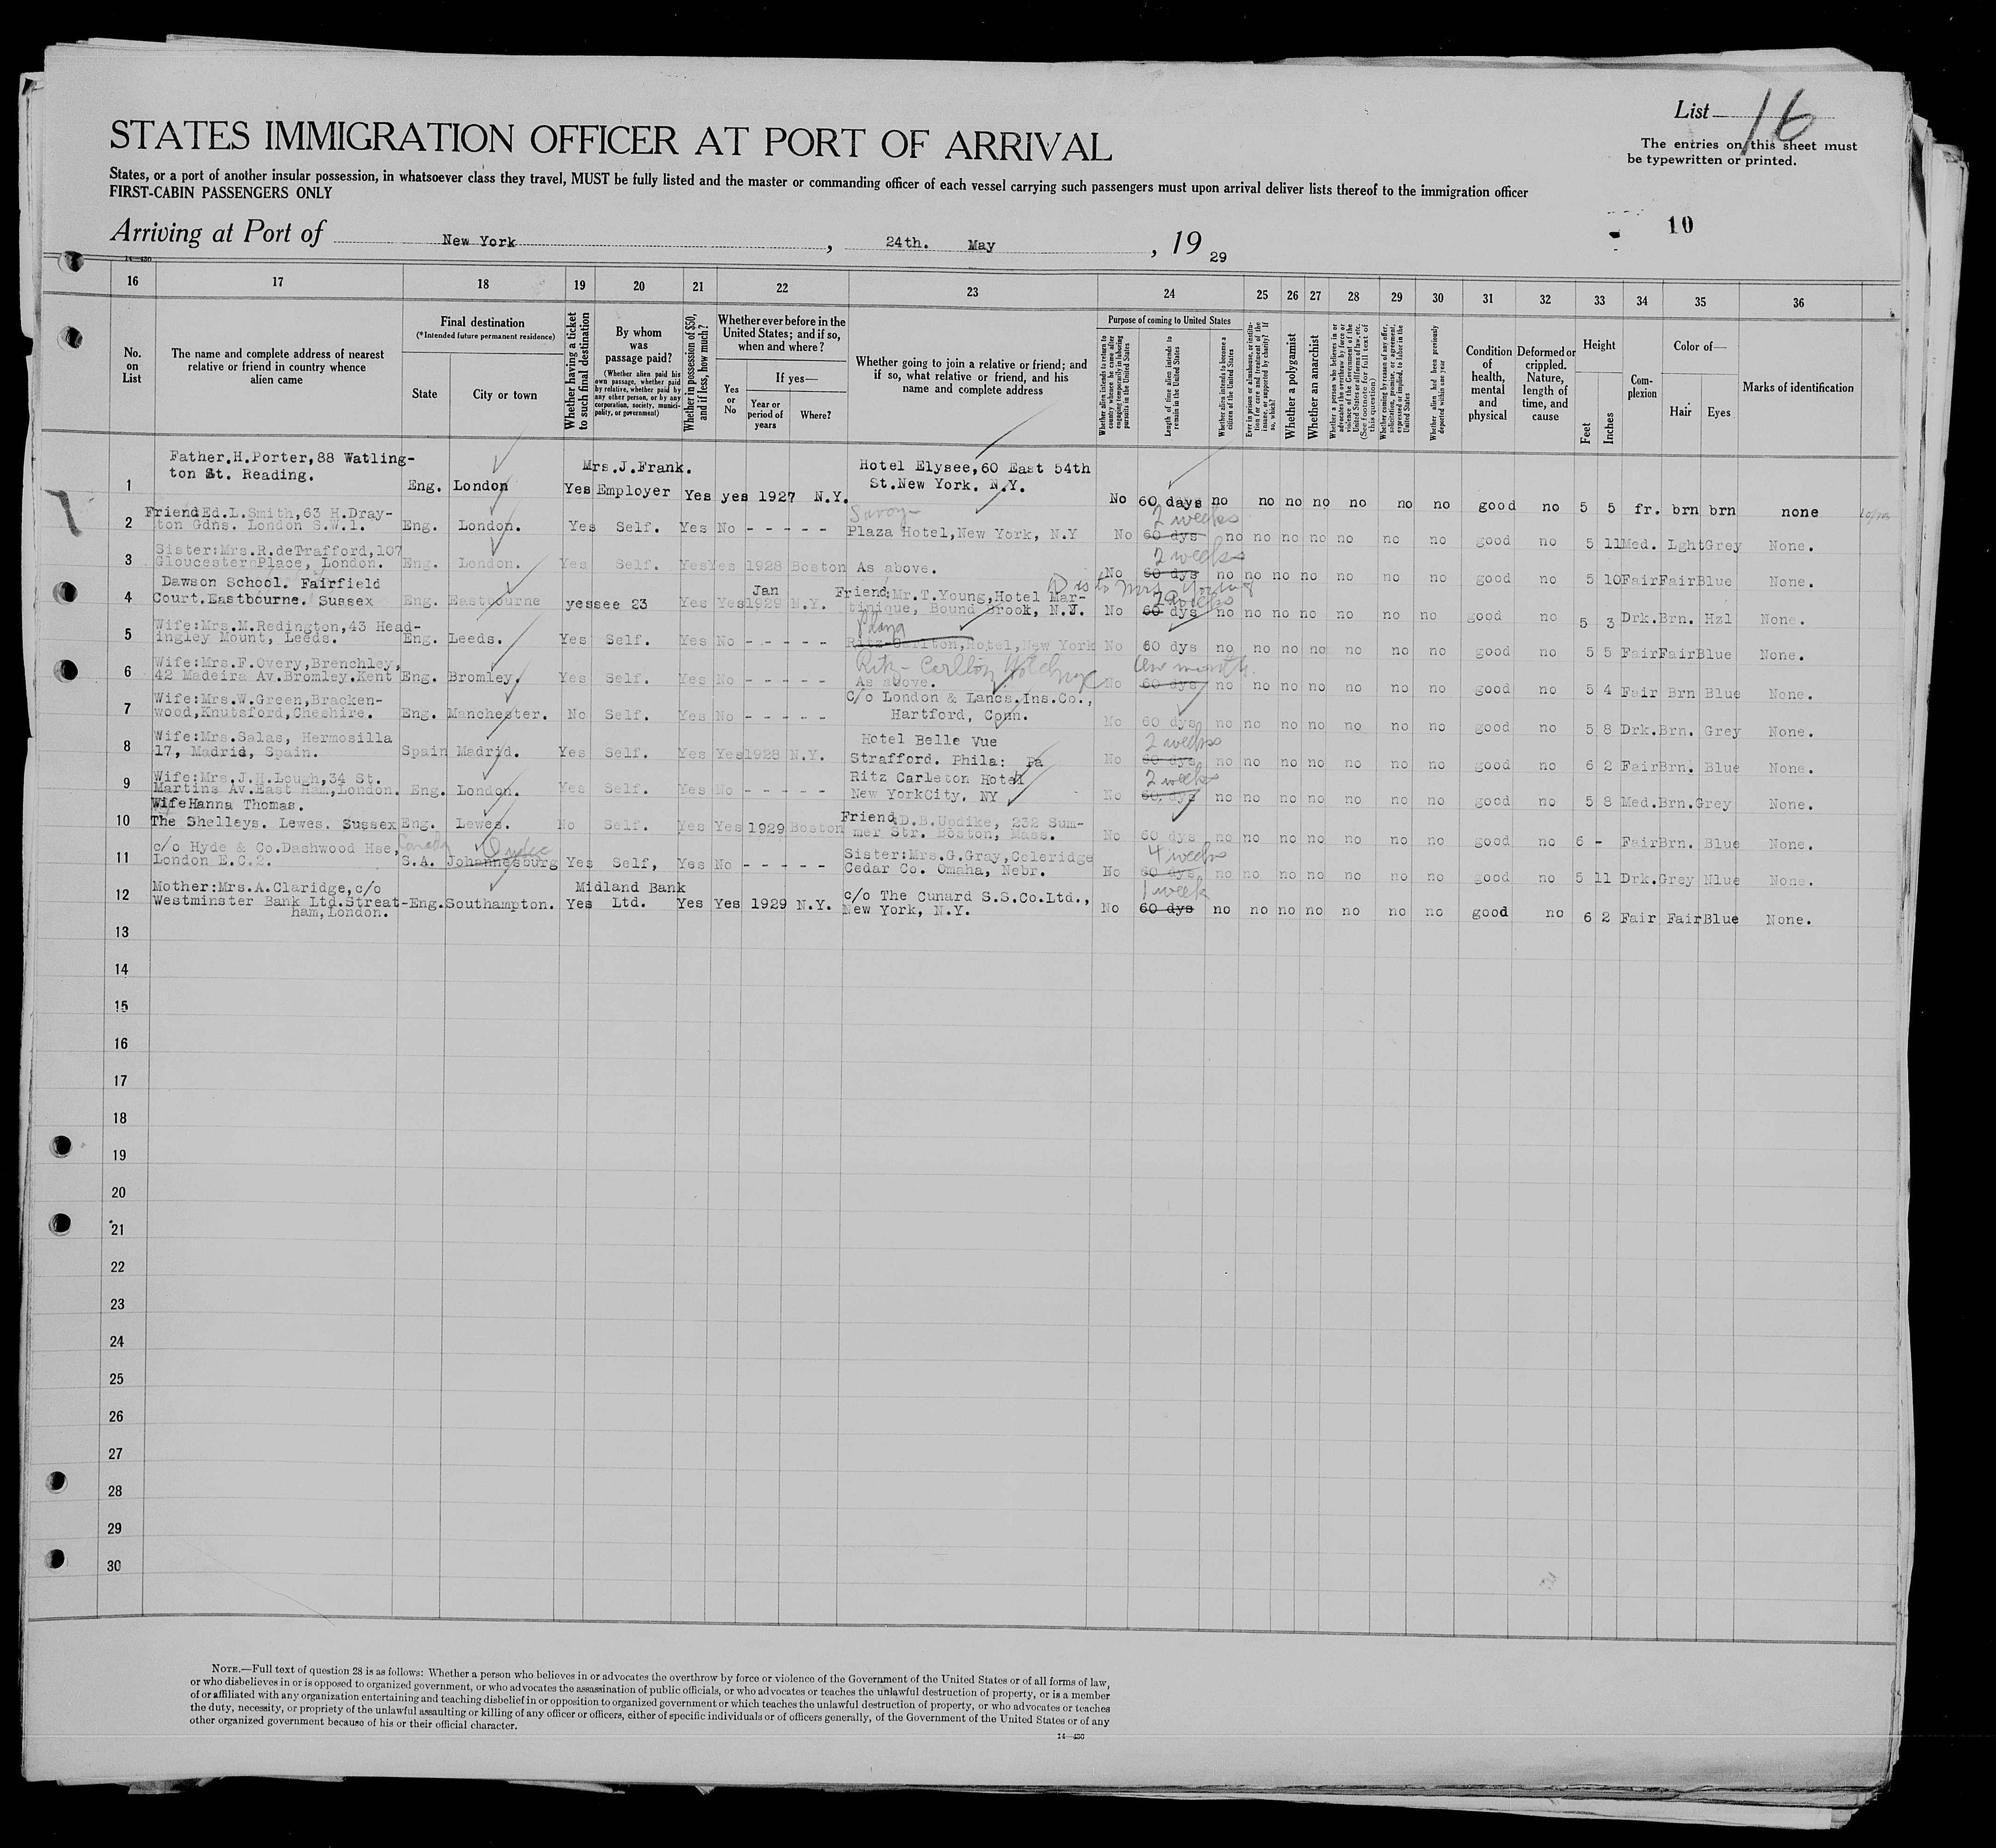 List 16
STATES IMMIGRATION OFFICER AT PORT OF ARRIVAL
The entries on this sheet must
be typewritten or printed.
States, or a port of another insular possession, in whatsoever class they travel, MUST be fully listed and the master or commanding officer of each vessel carrying such passengers must upon arrival deliver lists thereof to the immigration officer
FIRST-CABIN PASSENGERS ONLY
10
Arriving at Port of New York, 24th. May, 19 29
14—430
16 17 18 19 20 21 22 23 24 25 26 27 28 29 30 31 32 33 34 35 36
No. on List
The name and complete address of nearest relative or friend in country whence alien came
Final destination
(*Intended future permanent residence)
State
City or town
Whether having a ticket to such final destination
By whom was passage paid?
(Whether alien paid his own passage, whether paid by relative, whether paid by any other person, or by any corporation, society, municipality, or government)
Whether in possession of $50, and if less, how much?
Whether ever before in the United States; and if so, when and where?
Yes or No
If yes—
Year or period of years
Where?
Whether going to join a relative or friend; and if so, what relative or friend, and his name and complete address
Purpose of coming to United States
Whether alien intends to return to country whence he came after engaging temporarily in laboring pursuits in the United States
Length of time alien intends to remain in the United States
Whether alien intends to become a citizen of the United States
Ever in prison or almshouse, or institution for care and treatment of the insane, or supported by charity? If so, which?
Whether a polygamist
Whether an anarchist
Whether a person who believes in or advocates the overthrow by force or violence of the Government of the United States or all forms of law, etc. (See footnote for full text of this question)
Whether coming by reason of any offer, solicitation, promise, or agreement, expressed or implied, to labor in the United States
Whether alien had been previously deported within one year
Condition of health, mental and physical
Deformed or crippled. Nature, length of time, and cause
Height
Feet
Inches
Complexion
Color of—
Hair
Eyes
Marks of identification
1 Father.H.Porter,88 Watling-
ton St. Reading. Eng. London Yes Mrs.J.Frank. Employer Yes yes 1927 N.Y. Hotel Elysee,60 East 54th
St.New York. N.Y. No 60 days no no no no no no no good no 5 5 fr. brn brn none
2 Friend Ed.L.Smith,63 H.Dray-
ton Gdns. London S.W.1. Eng. London. Yes Self. Yes No - - - - - Savoy-
Plaza Hotel,New York, N.Y No 2 weeks 60 dys no no no no no no no good no 5 11 Med. Lght Grey None.
3 Sister:Mrs.R.deTrafford,107
Gloucester Place, London. Eng. London. Yes Self. Yes Yes 1928 Boston As above. No 2 weeks 60 dys no no no no no no no good no 5 10 Fair Fair Blue None.
4 Dawson School. Fairfield
Court.Eastbourne. Sussex Eng. Eastbourne yes see 23 Yes Yes Jan 1929 N.Y. Friend:Mr.T.Young,Hotel Mar-
tinique, Bound Brook, N.J. No 60 dys no no no no no no no good no 5 3 Drk. Brn. Hzl None.
5 Wife:Mrs.M.Redington,43 Head-
ingley Mount, Leeds. Eng. Leeds. Yes Self. Yes No - - - - - Plaza
Ritz-Carlton,Hotel,New York No 60 dys no no no no no no no good no 5 5 Fair Fair Blue None.
6 Wife:Mrs.F.Overy,Brenchley,
42 Madeira Av.Bromley.Kent Eng. Bromley. Yes Self. Yes No - - - - - Ritz-Carlton
As above. No One month. 60 dys no no no no no no no good no 5 4 Fair Brn Blue None.
7 Wife:Mrs.W.Green,Bracken-
wood,Knutsford,Cheshire. Eng. Manchester. No Self. Yes No - - - - - c/o London & Lancs.Ins.Co.,
Hartford, Conn. No 60 dys no no no no no no no good no 5 8 Drk. Brn. Grey None.
8 Wife:Mrs.Salas, Hermosilla
17, Madrid, Spain. Spain Madrid. Yes Self. Yes Yes 1928 N.Y. Hotel Belle Vue
Strafford. Phila: Pa No 2 weeks 60 dys no no no no no no no good no 6 2 Fair Brn. Blue None.
9 Wife:Mrs.J.H.Lough,34 St.
Martins Av.East Ham,London. Eng. London. Yes Self. Yes No - - - - - Ritz Carleton Hotel
New YorkCity. NY No 2 weeks 60 dys no no no no no no no good no 5 8 Med. Brn. Grey None.
10 Wife Hanna Thomas.
The Shelleys. Lewes. Sussex Eng. Lewes. No Self. Yes Yes 1929 Boston Friend:D.B.Updike, 232 Sum-
mer Str. Boston, Mass. No 60 dys no no no no no no no good no 6 - Fair Brn. Blue None.
11 c/o Hyde & Co.Dashwood Hse,
London E.C.2. Canada S.A. Johannesburg Yes Self, Yes No - - - - - Sister:Mrs.G.Gray,Coleridge
Cedar Co. Omaha, Nebr. No 4 weeks 60 dys no no no no no no no good no 5 11 Drk. Grey Nlue None.
12 Mother:Mrs.A.Claridge,c/o
Westminster Bank Ltd.Streat-
ham,London. Eng. Southampton. Yes Midland Bank Ltd. Yes Yes 1929 N.Y. c/o The Cunard S.S.Co.Ltd.,
New York, N.Y. No 1 week 60 dys no no no no no no no good no 6 2 Fair Fair Blue None.
13
14
15
16
17
18
19
20
21
22
23
24
25
26
27
28
29
30
NOTE.—Full text of question 28 is as follows: Whether a person who believes in or advocates the overthrow by force or violence of the Government of the United States or of all forms of law,
or who disbelieves in or is opposed to organized government, or who advocates the assassination of public officials, or who advocates or teaches the unlawful destruction of property, or is a member
of or affiliated with any organization entertaining and teaching disbelief in or opposition to organized government or which teaches the unlawful destruction of property, or who advocates or teaches
the duty, necessity, or propriety of the unlawful assaulting or killing of any officer or officers, either of specific individuals or of officers generally, of the Government of the United States or of any
other organized government because of his or their official character.
14—430